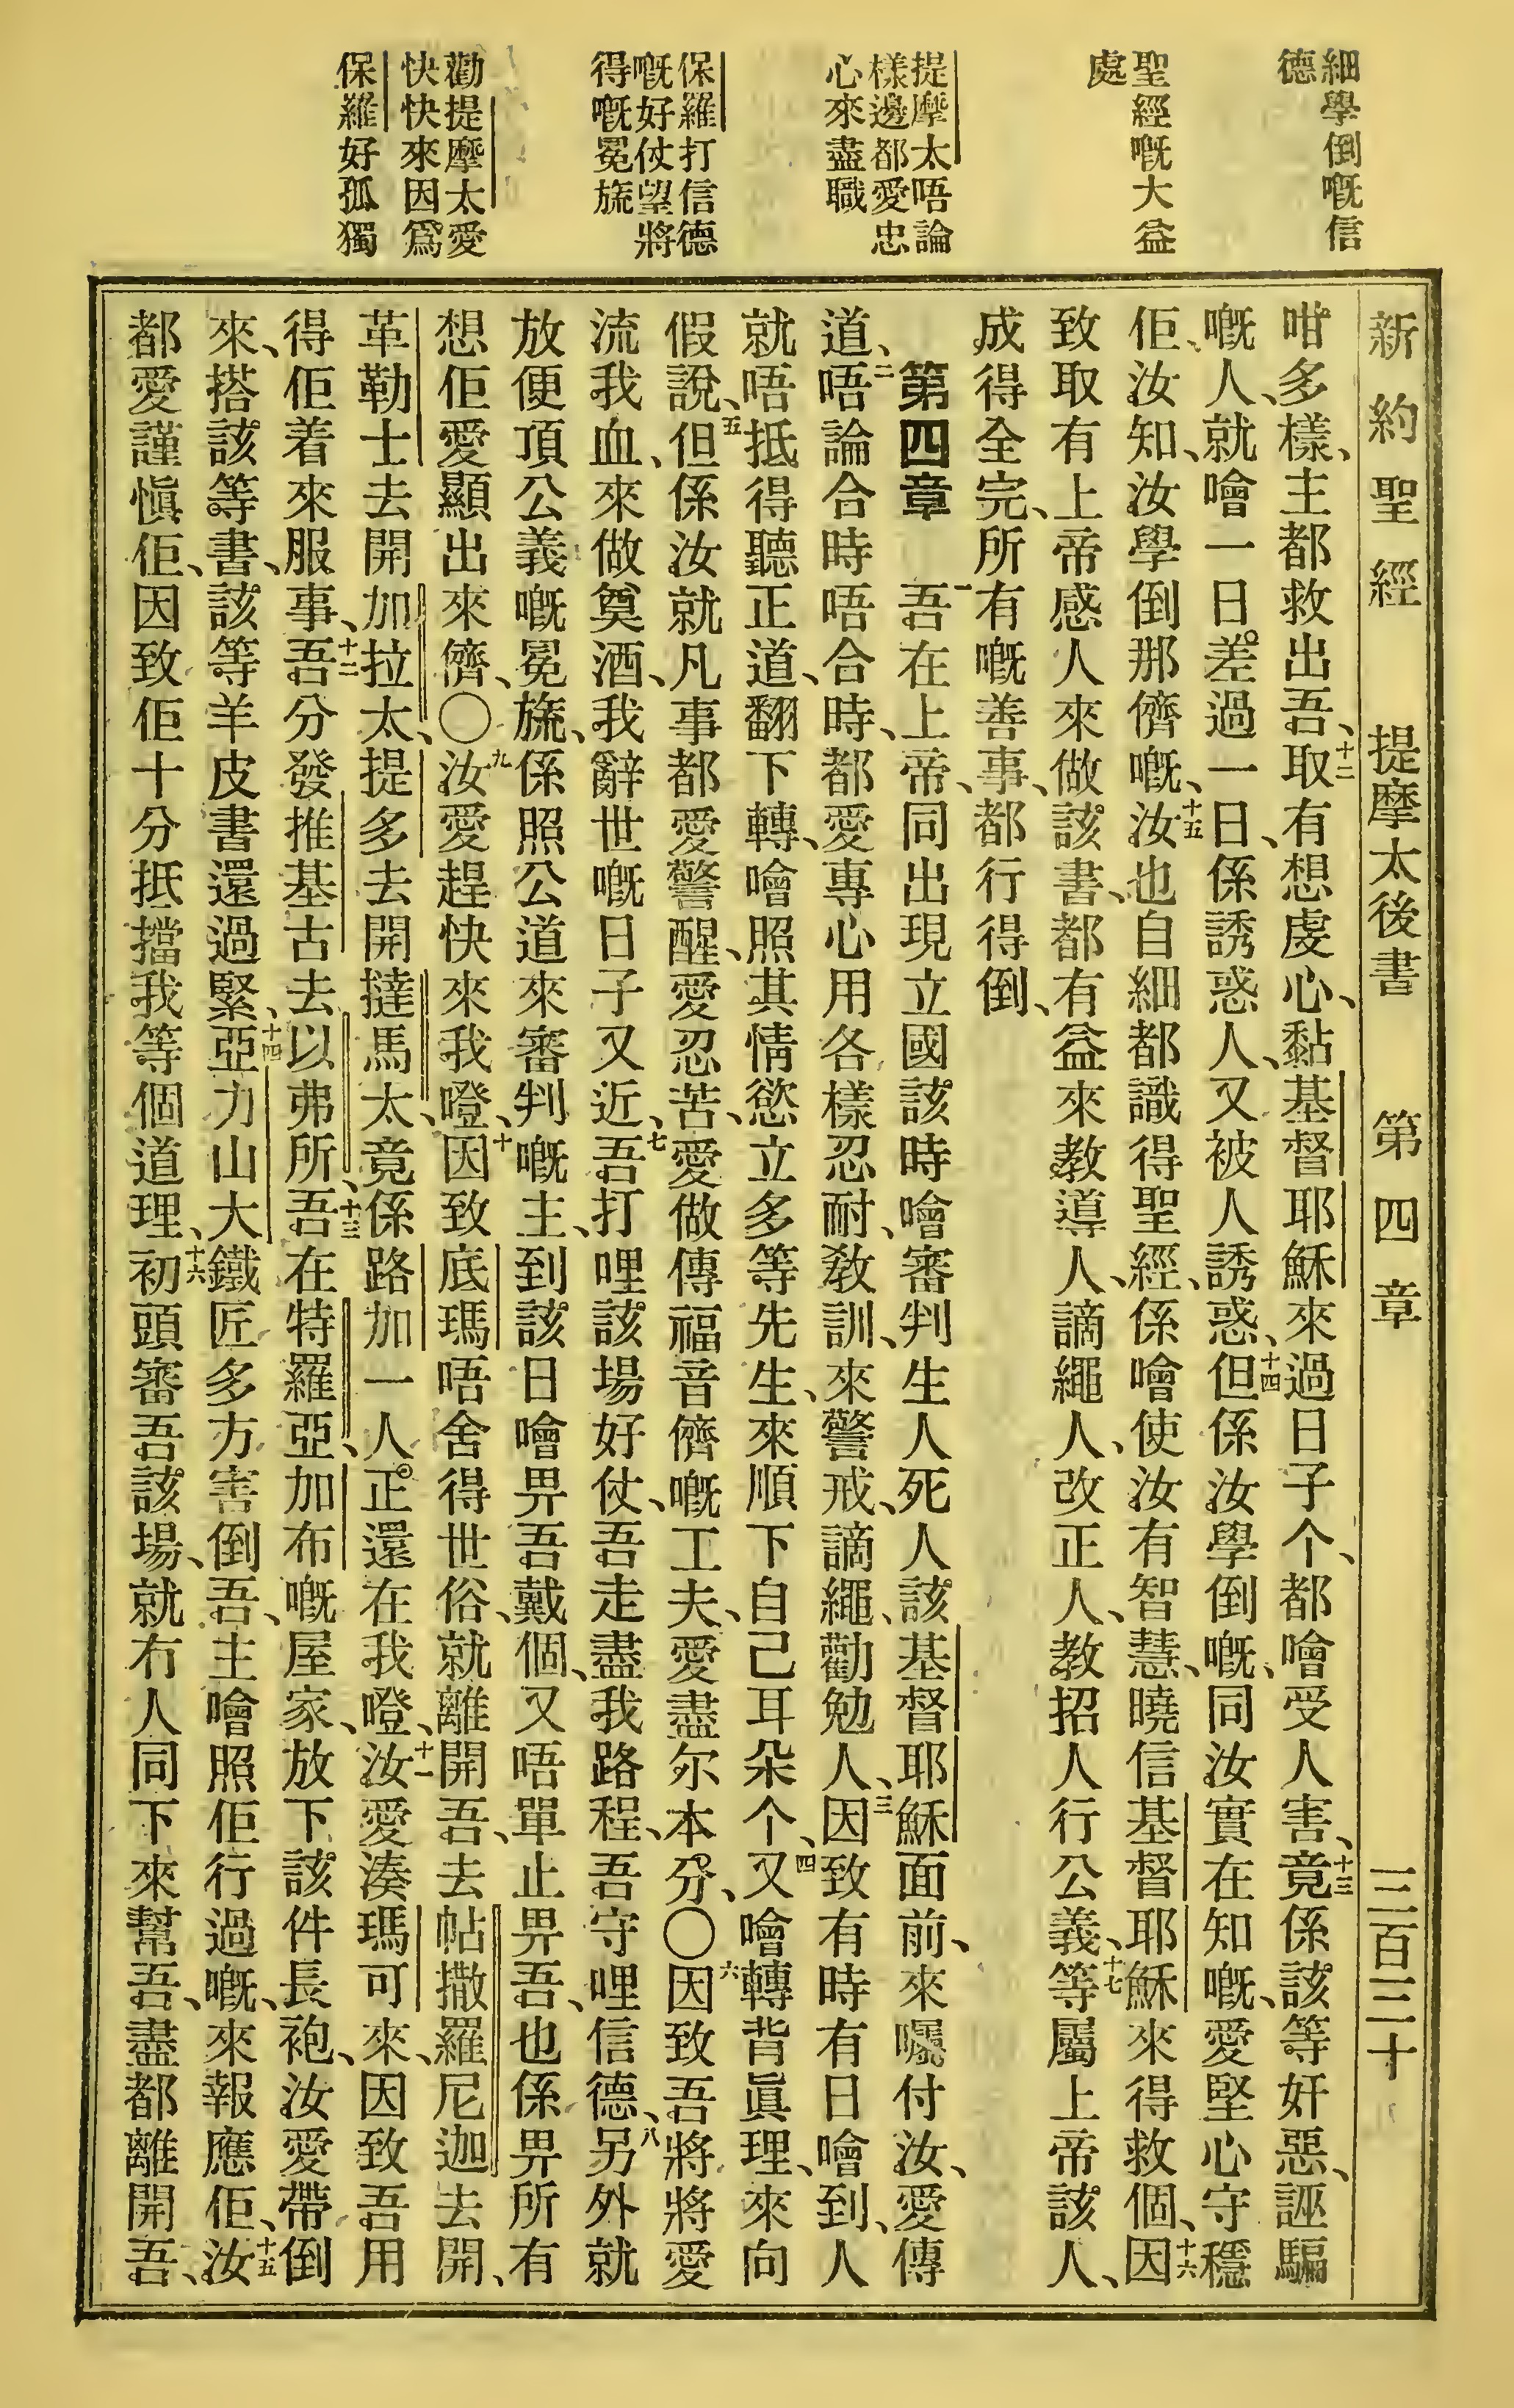 細學倒嘅信
德
聖經嘅大益
處
提摩太唔論
樣邊都愛忠
心來盡職
保羅打信德
嘅好仗望將
得嘅冕旒
勸提摩太愛
快快來因爲
保羅好孤獨
新約聖經 提摩太後書 第四章 三百三十
咁多樣、主都救出吾、十二取有想虔心、黏基督耶穌來過日子个、都噲受人害、十三竟係該等奸惡、誣騙
嘅人、就噲一日差過一日、係誘惑人、又被人誘惑、十四但係汝學倒嘅、同汝實在知嘅、愛堅心守穩
佢、汝知、汝學倒那儕嘅、十五汝也自細都識得聖經、係噲使汝有智慧、曉信基督耶穌來得救個、十六因
致取有上帝感人來做該書、都有益來教導人、謫繩人、改正人、教招人行公義、十七等屬上帝該人、
成得全完、所有嘅善事、都行得倒、
第四章 一吾在上帝、同出現立國該時噲審判生人死人該基督耶穌面前、來囑付汝、愛傳
道、二唔論合時唔合時、都愛專心用各樣忍耐、教訓、來警戒、謫繩、勸勉人、三因致有時有日噲到、人
就唔抵得聽正道、翻下轉、噲照其情慾立多等先生、來順下自己耳朵个、四又噲轉背眞理、來向
假說、五但係汝就凡事都愛警醒、愛忍苦、愛做傳福音儕嘅工夫、愛盡尔本分、〇六因致吾將將愛
流我血、來做奠酒、我辭世嘅日子又近、七吾打哩該場好仗、吾走盡我路程、吾守哩信德、八另外就
放便頂公義嘅冕旒、係照公道來審判嘅主、到該日噲畀吾戴個、又唔單止畀吾、也係畀所有
想佢愛顯出來儕、〇九汝愛趕快來我嶝、十因致底瑪唔舍得世俗、就離開吾、去帖撒羅尼迦去開、
革勒士去開加拉太、提多去開撻馬太、竟係路加一人正還在我嶝、十一汝愛湊瑪可來、因致吾用
得佢着來服事、十二吾分發推基古去以弗所、十三吾在特羅亞、加布嘅屋家、放下該件長袍、汝愛帶倒
來、搭該等書、該等羊皮書還過緊、十四亞力山大鐵匠多方害倒吾、主噲照佢行過嘅、來報應佢、十五汝
都愛謹愼佢、因致佢十分抵擋我等個道理、十六初頭審吾該場、就冇人同下來幫吾、盡都離開吾、